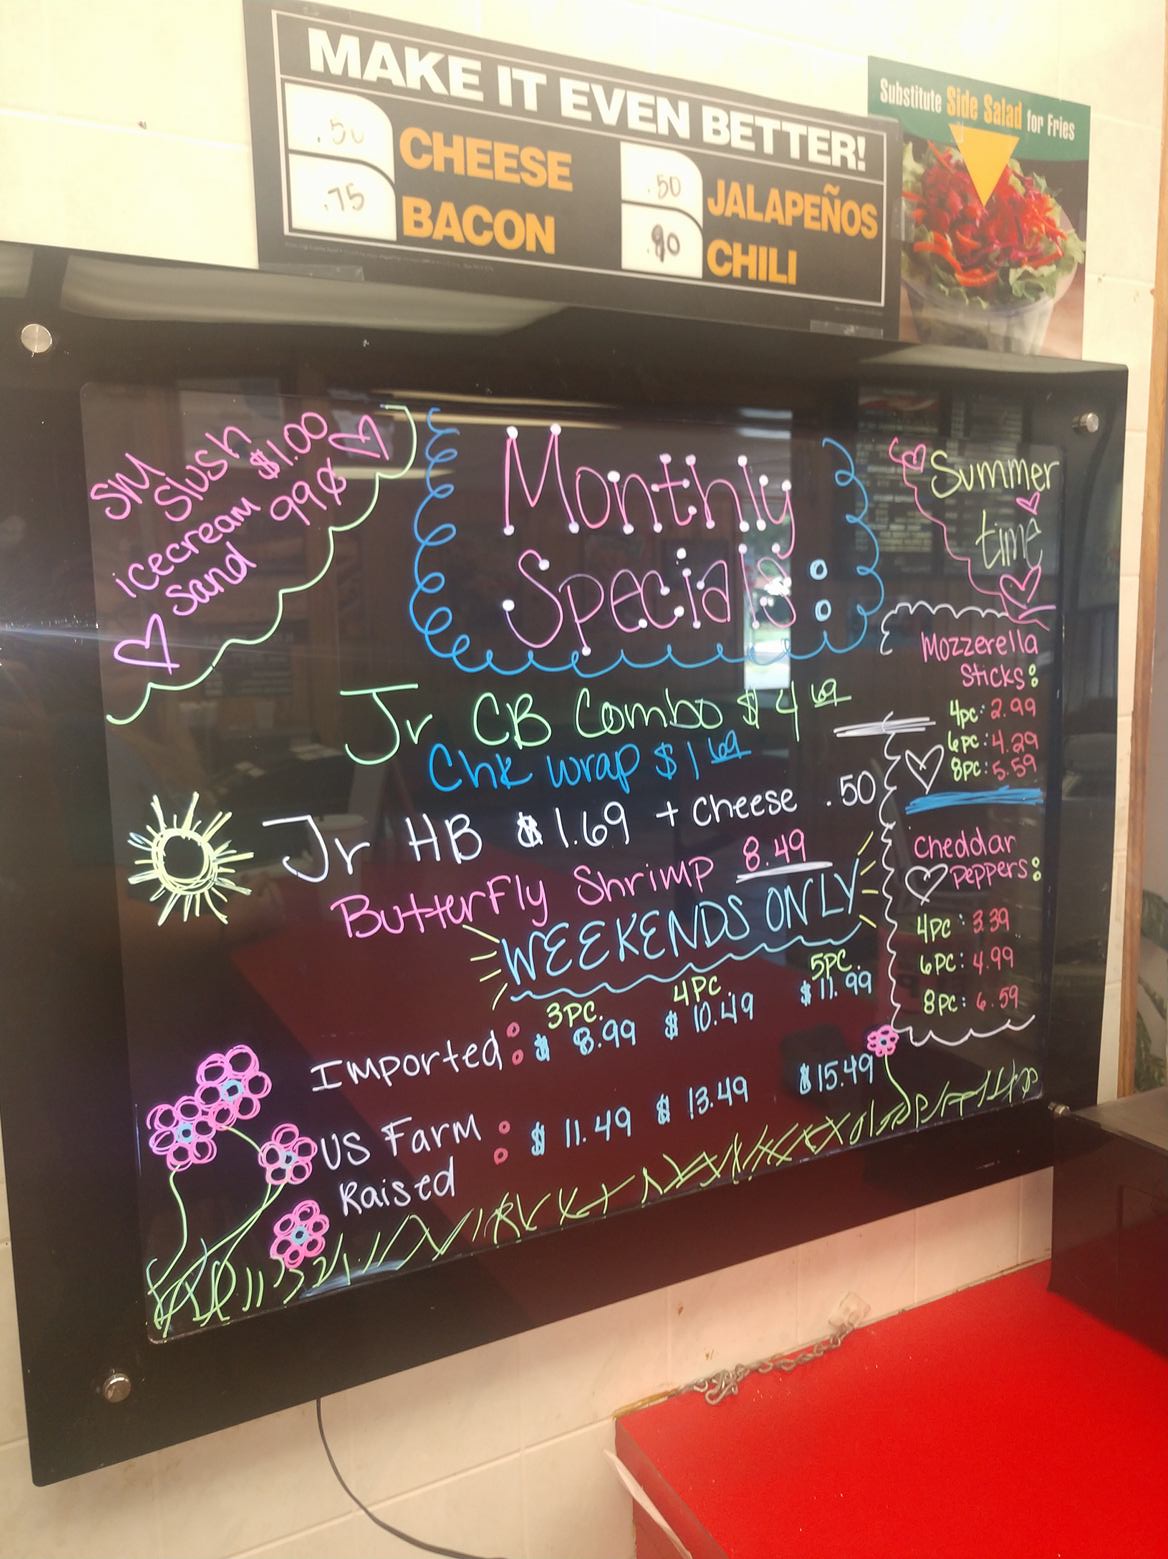 MAKE IT EVEN BETTER!
.50 CHEESE
.75 BACON
.50 JALAPEÑOS
.90 CHILI
Substitute Side Salad for Fries
SM
Slush $1.00
icecream 99¢
Sand
Monthly
Specials:
Summer
time
Jr CB Combo $4.69
Chk wrap $1.69
Jr HB $1.69 + cheese .50
Butterfly Shrimp 8.49
WEEKENDS ONLY
3PC. 4PC. 5PC.
Imported: $8.99 $10.49 $11.99
US Farm : $11.49 $13.49 $15.49
Raised
Mozzerella
Sticks:
4pc: 2.99
6pc: 4.29
8pc: 5.59
Cheddar
Peppers:
4pc: 3.39
6pc: 4.99
8pc: 6.59